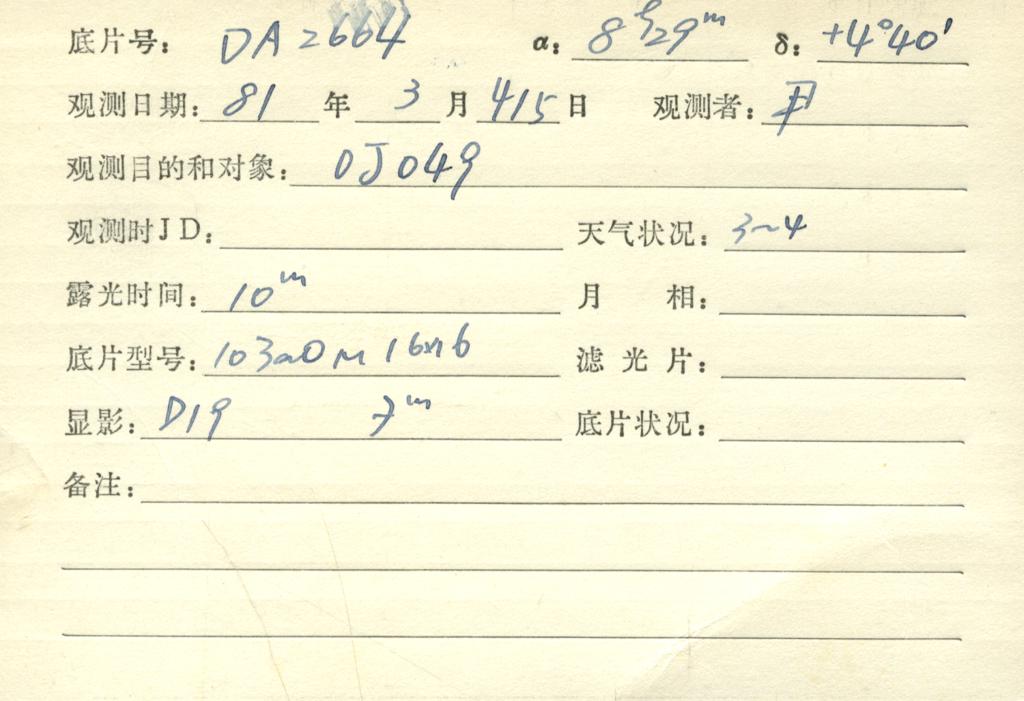 底片号: DA2664 α: 8h29m δ: +4°40'
观测日期: 81 年 3 月 4/5 日 观测者:
观测目的和对象: OJ049
观测时JD: 天气状况: 3~4
露光时间: 10m 月 相:
底片型号: 103aO M 16x16 滤光片:
显影: D19 7m 底片状况:
备注: